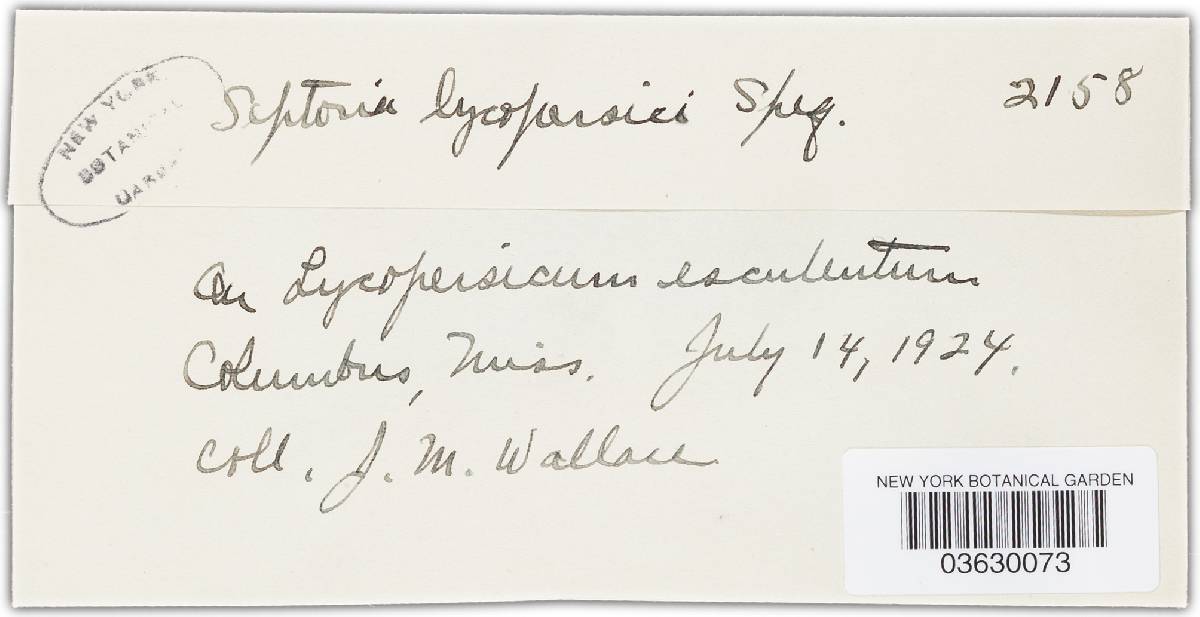 NEW YORK
BOTANICAL
GARDEN
Septoria lycopersici Speg. 2158
On Lycopersicum esculentum
Columbus, Miss. July 14, 1924.
Coll. J. M. Wallace
NEW YORK BOTANICAL GARDEN
03630073